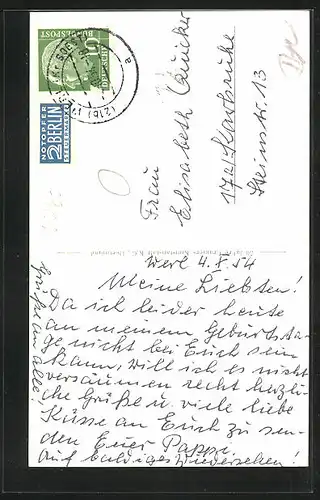 10
DEUTSCHE
BUNDESPOST
NOTOPFER
2 BERLIN
STEUERMARKE
(21b)
a
Frau
Elisabeth
17a/Karlsruhe
Steinstr. 13
Werl 4. X. 54
Meine Liebsten!
Da ich leider heute
an meinem Geburtsta-
ge nicht bei Euch sein
kann, will ich es nicht
versäumen recht herzli-
che Grüße u. viele liebe
Küsse an Euch zu sen-
den Euer Pappa.
Auf baldiges Wiedersehen!
Grüße an alle!